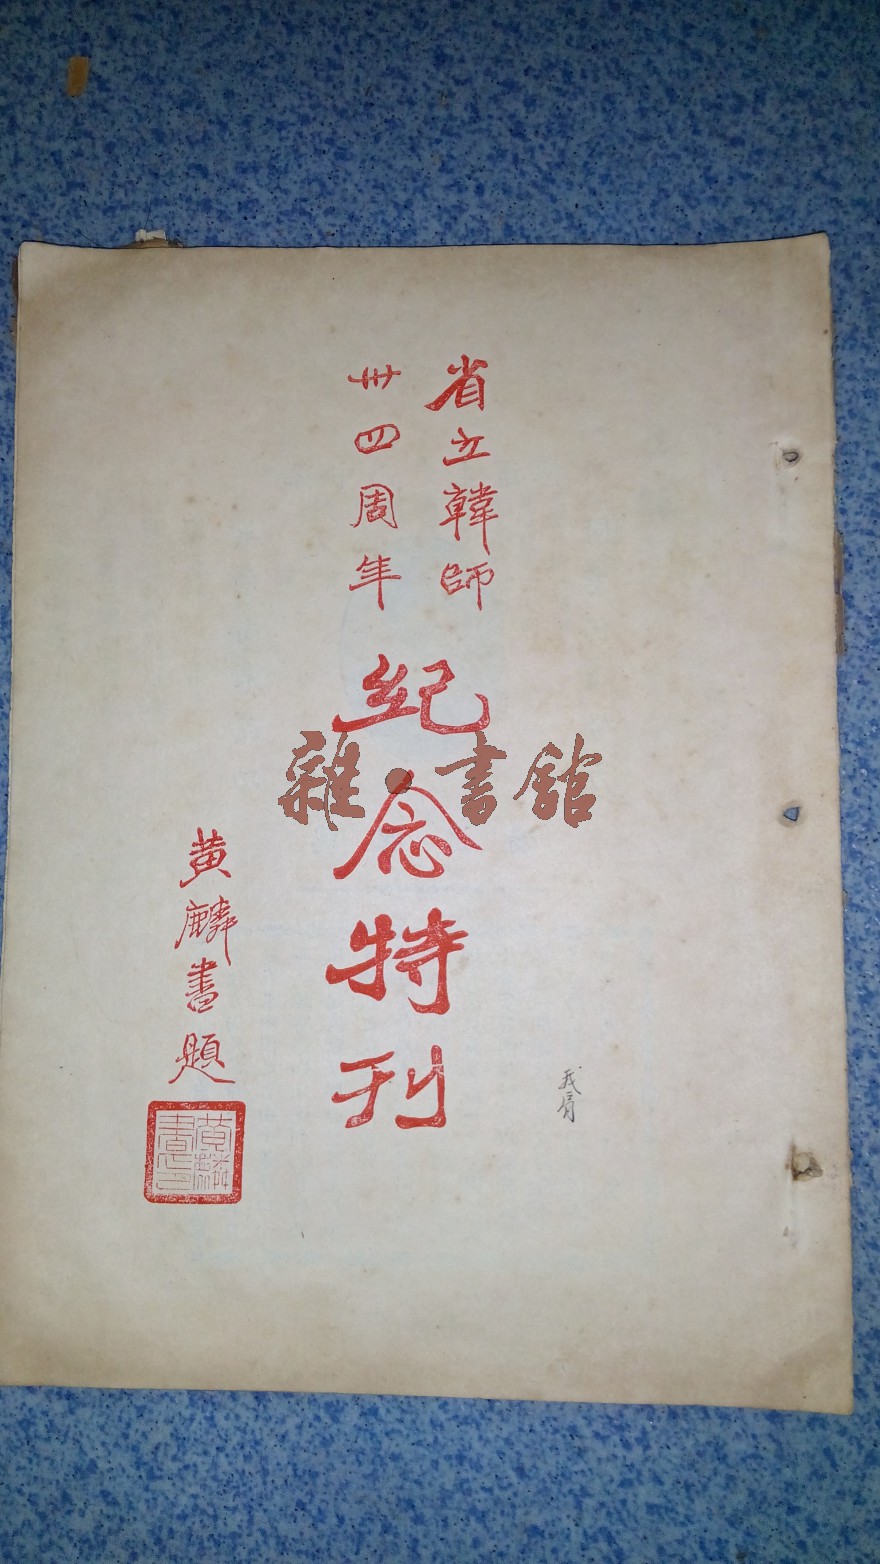 省立韓師
卅四周年
紀念特刊
黄麟書題
黄麟
書印
雜·書館